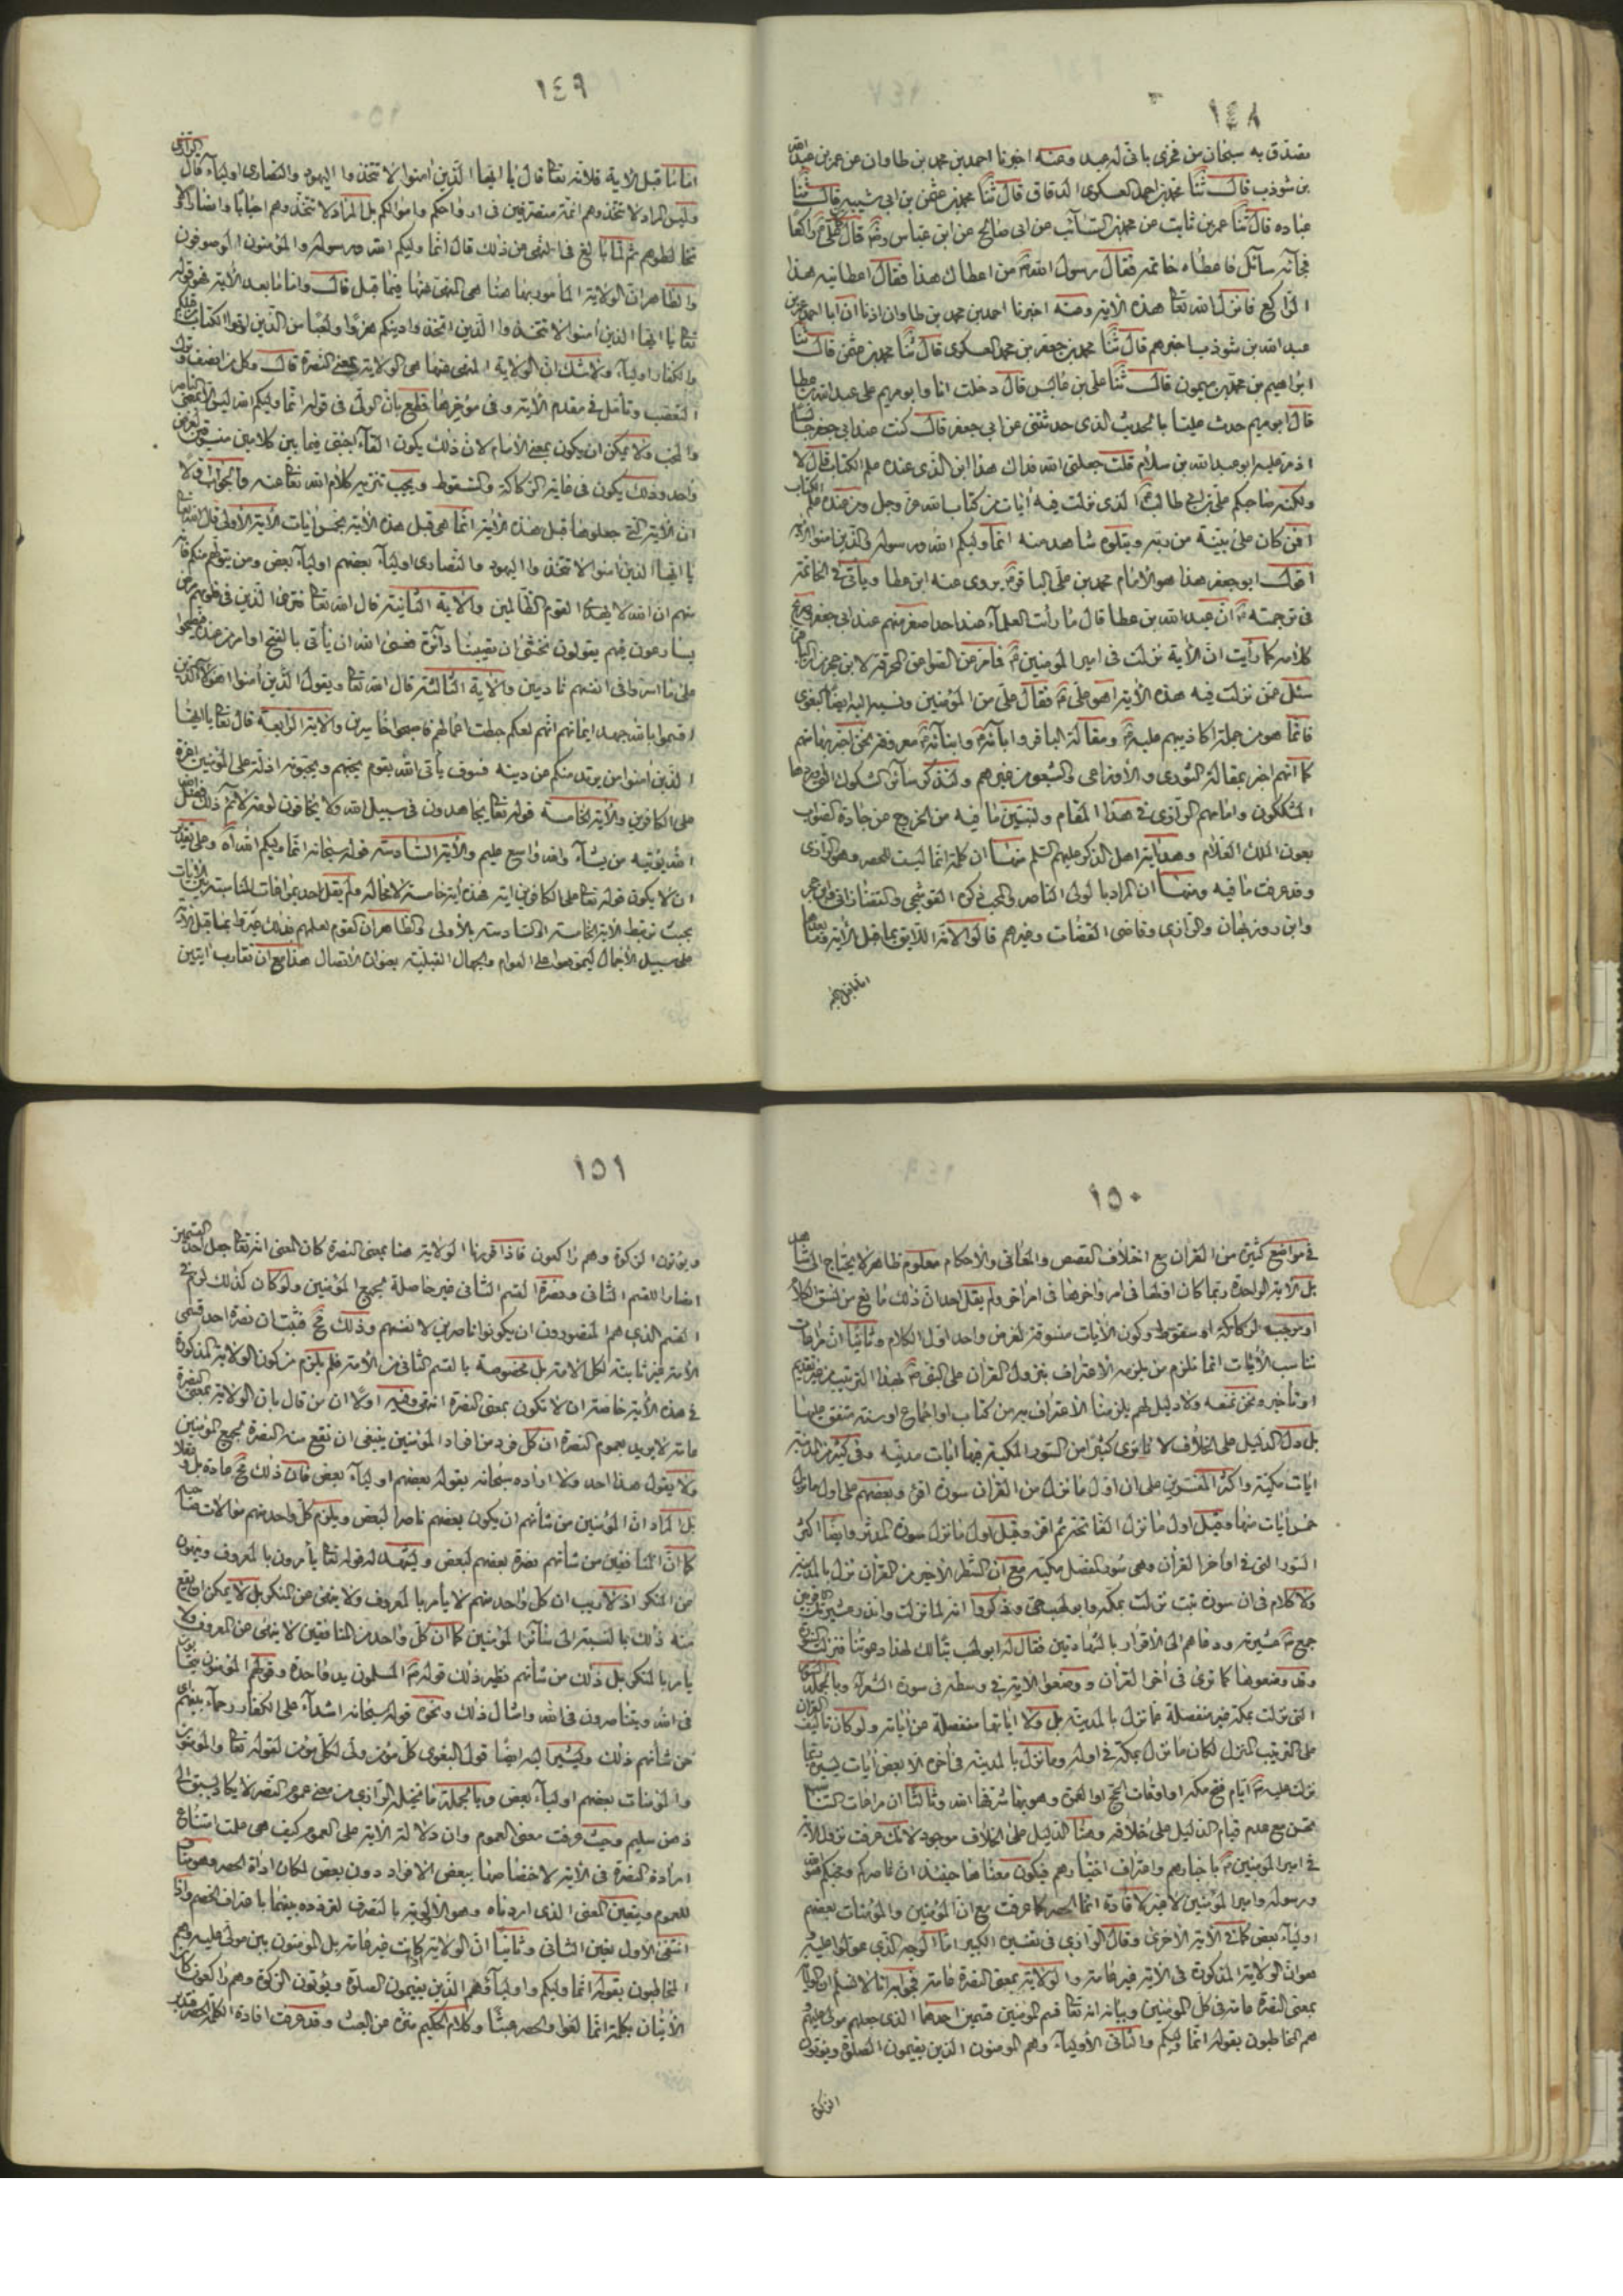 ١٤٨
يتصدق به سبحان من فخرني باني له عبد وعنه اخبرنا احمد بن محمد بن طاوان عن عمر بن عبد الله
بن شوذب قال ثنا محمد بن احمد العسكري الدقاق قال ثنا محمد بن عثمن بن ابي شيبه قال ثنا
عباده قال ثنا عمر بن ثابت عن محمد بن السائب عن ابي صالح عن ابن عباس رض قال كان علي راكعا
فجائه سائل فاعطاه خاتمه فقال رسول الله من اعطاك هذا فقال اعطانيه هذا
الراكع فانزل الله تعا هذه الآية وعنه اخبرنا احمد بن محمد بن طاوان اذنا ان ابا احمد عمر بن
عبد الله بن شوذب اخبرهم قال ثنا محمد بن جعفر بن محمد العسكري قال ثنا محمد بن عثمن قال ثنا
ابراهيم بن محمد بن ميمون قال ثنا علي بن عابس قال دخلت انا وابو مريم على عبد الله بن عطا
قال ابو مريم حدث علينا بالحديث الذي حدثتني عن ابي جعفر قال كنت عند ابي جعفر جالسا
اذ مر عليه ابو عبد الله بن سلام قلت جعلني الله فداك هذا ابن الذي عنده علم الكتاب قال لا
ولكنه صاحبكم علي بن ابي طالب الذي نزلت فيه آيات من كتاب الله عز وجل ومن عنده علم الكتاب
افمن كان على بينة من ربه ويتلوه شاهد منه انما وليكم الله ورسوله والذين امنوا الآية
اقول ابو جعفر هذا هو الامام محمد بن علي الباقر يروي عنه ابن عطا ويأتي في الخاتمة
في ترجمته ان عبد الله بن عطا قال ما رأيت العلماء عند احد اصغر منهم عند ابي جعفر
كلامه كما رأيت ان الآية نزلت في امير المؤمنين فما زعم في الصواعق المحرقة لابن حجر من ان الباقر
سئل عمن نزلت فيه هذه الآية اهو علي فقال علي من المؤمنين ونسبه اليه ايضا البغوي
فانما هو من جملة اكاذيبهم عليه ومقالة الباقر وابائه وابنائه معروفة نحن اخبر بها منهم
كما انهم اخبر بمقالة الثوري والاوزاعي والشعبي من غيرهم ولنذكر سائر الشكوك التي اوردها
المشككون وامامهم الرازي في هذا المقام ولنبين ما فيه من الخروج عن جادة الصواب
بعون الملك العلام وهداية اهل الذكر عليهم السلم منها ان كلمة انما ليست للحصر وهو للرازي
وقد عرفت ما فيه ومنها ان المراد بالولي الناصر والمحب ذكره القوشجي والتفتازاني وابن حجر
وابن روزبهان والرازي وقاضي القضات وغيرهم قالوا لانه اللائق بما قبل الآية وما بعدها
اما ما قبل الآية
١٤٩
اما ما قبل الآية فلانه تعا قال يا ايها الذين امنوا لا تتخذوا اليهود والنصارى اولياء قال الرازي
وليس المراد لا تتخذوهم ائمة متصرفين في ارواحكم واموالكم بل المراد لا تتخذوهم احبابا وانصارا ولا
تخالطوهم ثم لما بالغ في النهي عن ذلك قال انما وليكم الله ورسوله والمؤمنون الموصوفون
والظاهر ان الولاية المأمور بها هنا هي المنهي عنها فيما قبل قال واما ما بعد الآية فهو قوله
تعا يا ايها الذين امنوا لا تتخذوا الذين اتخذوا دينكم هزوا ولعبا من الذين اوتوا الكتاب من قبلكم
والكفار اولياء ولا شك ان الولاية المنهي عنها هي الولاية بمعنى النصرة قال وكل من انصف وترك
التعصب وتأمل في مقدم الآية وفي مؤخرها قطع بان الولي في قوله انما وليكم الله ليس الا بمعنى الناصر
والمحب ولا يمكن ان يكون بمعنى الامام لان ذلك يكون القاء اجنبي فيما بين كلامين مسوقين لغرض
واحد وذلك يكون في غاية الركاكة والسقوط ويجب تنزيه كلام الله تعا عنه والجواب اولا
ان الآية التي جعلوها قبل هذه الآية انما هي قبل هذه الآية بخمس آيات الآية الاولى قال الله تعا
يا ايها الذين امنوا لا تتخذوا اليهود والنصارى اولياء بعضهم اولياء بعض ومن يتولهم منكم فانه
منهم ان الله لا يهدي القوم الظالمين والآية الثانية قال الله تعا فترى الذين في قلوبهم مرض
يسارعون فيهم يقولون نخشى ان تصيبنا دائرة فعسى الله ان يأتي بالفتح او امر من عنده فيصبحوا
على ما اسروا في انفسهم نادمين والآية الثالثة قال الله تعا ويقول الذين امنوا اهؤلاء الذين
اقسموا بالله جهد ايمانهم انهم لمعكم حبطت اعمالهم فاصبحوا خاسرين والآية الرابعة قال تعا يا ايها
الذين امنوا من يرتد منكم عن دينه فسوف يأتي الله بقوم يحبهم ويحبونه اذلة على المؤمنين اعزة
على الكافرين والآية الخامسة قوله تعا يجاهدون في سبيل الله ولا يخافون لومة لائم ذلك فضل
الله يؤتيه من يشاء والله واسع عليم والآية السادسة قوله سبحانه انما وليكم الله اه وعلى تقدير
ان لا يكون قوله تعا على الكافرين اية فهذه آية خامسة لا محالة ولم يقل احد بمراعات المناسبة بين الآيات
بحيث يرتبط الآية الخامسة او السادسة بالاولى والظاهر ان القوم لعلمهم بذلك عبروا بما قبل الآية
على سبيل الاجمال ليموهوا على العوام والجهال القبلية بعنوان الاتصال هذا مع ان تقارب ايتين
١٥٠
في مواضع كثيرة من القرآن مع اختلاف القصص والمعاني والاحكام معلوم ظاهر لا يحتاج الى شاهد
بل الآية الواحدة ربما كان اولها في امر واخرها في امر اخر ولم يقل احد ان ذلك مانع من نسق الكلام
او موجب لركاكته او سقوطه وكون الآيات مسوقة لغرض واحد اول الكلام وثانيا ان مراعات
تناسب الآيات انما تلزم من يلزمه الاعتراف بنزول القرآن على النبي بهذا الترتيب من غير تقديم
او تأخير ونحن نمنعه ولا دليل لهم يلزمنا الاعتراف به من كتاب او اجماع او سنة متفق عليها
بل دل الدليل على الخلاف لانا نرى كثيرا من السور المكية فيها آيات مدنية وفي كثير من المدنية
آيات مكية واكثر المفسرين على ان اول ما نزل من القرآن سورة اقرء وبعضهم على اول ما نزل
خمس آيات منها وقيل اول ما نزل الفاتحة ثم اقرء وقيل اول ما نزل سورة المدثر وايضا اكثر
السور التي في اواخر القرآن وهي سور المفصل مكية مع ان الشطر الاخير من القرآن نزل بالمدينة
ولا كلام في ان سورة تبت نزلت بمكة وابو لهب حي وذكروا انه لما نزلت وانذر عشيرتك الاقربين
جمع عشيرته ودعاهم الى الاقرار بالشهادتين فقال له ابو لهب تبا لك لهذا دعوتنا فنزلت السورة
وقد وضعوها كما ترى في اخر القرآن ووضعوا الآية في وسطه في سورة الشعراء وبالجملة السور
التي نزلت بمكة غير منفصلة عما نزل بالمدينة بل ولا آياتها منفصلة عن آياته ولو كان تأليف القرآن
على الترتيب المنزل لكان ما نزل بمكة في اوله وما نزل بالمدينة في آخره الا بعض آيات يسيرة ربما
نزلت عليه ايام فتح مكة او اوقات الحج او العمرة وهو بها شرفها الله وثالثا ان مراعات التناسب
يحسن مع عدم قيام الدليل على خلافه وهنا الدليل على الخلاف موجود لانك عرفت نزول الآية
في امير المؤمنين باخبارهم واعتراف اخيارهم فيكون معناها حينئذ ان ناصركم ومحبكم هو الله
ورسوله وامير المؤمنين لا غير لافادة انما الحصر كما عرفت مع ان المؤمنين والمؤمنات بعضهم
اولياء بعض كما في الآية الاخرى وقال الرازي في تفسيره الكبير اما الوجه الذي عولوا عليه
هو ان الولاية المذكورة في الآية غير عامة والولاية بمعنى النصرة عامة فجوابه انا لا نسلم ان الولاية
بمعنى النصرة عامة في كل المؤمنين وبيانه انه تعا قسم المؤمنين قسمين احدهما الذي جعلهم مولى عليهم
هم المخاطبون بقوله انما وليكم والثاني الاولياء وهم المؤمنون الذين يقيمون الصلوة ويؤتون
الزكوة
١٥١
ويؤتون الزكوة وهم راكعون فاذا قررنا الولاية هنا بمعنى النصرة كان المعنى انه تعا جعل احد القسمين
انصارا للقسم الثاني ونصرة القسم الثاني غير حاصلة لجميع المؤمنين ولو كان كذلك لزم في
القسم الذي هم المنصورون ان يكونوا ناصرين لانفسهم وذلك مح فثبت ان نصرة احد قسمي
الامة غير ثابتة لكل الامة بل مخصوصة بالقسم الثاني من الامة فلم يلزم من كون الولاية المذكورة
في هذه الآية خاصة ان لا تكون بمعنى النصرة انتهى وفيه اولا ان من قال بان الولاية بمعنى النصرة
عامة لا يريد بعموم النصرة ان كل فرد من افراد المؤمنين ينبغي ان تقع منه النصرة لجميع المؤمنين
ولا يقول هذا احد ولا اراده سبحانه بقوله بعضهم اولياء بعض فان ذلك مح عادة بل وعقلا
بل المراد ان المؤمنين من شأنهم ان يكون بعضهم ناصرا لبعض ويلزم كل واحد منهم موالات صاحبه
كما ان المنافقين من شأنهم نصرة بعضهم لبعض ويشهد له قوله تعا يأمرون بالمعروف وينهون
عن المنكر اذ لا ريب ان كل واحد منهم لا يأمر بالمعروف ولا ينهى عن المنكر بل لا يمكن ان يقع
منه ذلك بالنسبة الى سائر المؤمنين كما ان كل واحد من المنافقين لا ينهى عن المعروف ولا
يأمر بالمنكر بل ذلك من شأنهم نظير ذلك قوله المسلمون يد واحدة وقولهم المؤمنون يتحابون
في الله ويتناصرون في الله وامثال ذلك ونحوه قوله سبحانه اشداء على الكفار رحماء بينهم اي
من شأنهم ذلك ويشير اليه ايضا قول البغوي كل مؤمن ولي لكل مؤمن لقوله تعا والمؤمنون
والمؤمنات بعضهم اولياء بعض وبالجملة ما تخيله الرازي من معنى عموم النصرة لا يكاد يسبق الى
ذهن سليم وحيث عرفت معنى العموم وان دلالة الآية على العموم كيف هي علمت امتناع
ارادة النصرة في الآية لاختصاصها ببعض الافراد دون بعض لمكان اداة الحصر وهو مناف
للعموم ويتعين المعنى الذي اردناه وهو الاولوية بالتصرف لتردده بينهما باعتراف الخصم واذا
انتفى الاول تعين الثاني وثانيا ان الولاية اذا كانت غير عامة بل المؤمنون بين مولى عليه وهم
المخاطبون بقوله انما وليكم واولياء هم الذين يقيمون الصلوة ويؤتون الزكوة وهم راكعون كان
الاتيان بكلمة انما لغوا والحصر عبثا وكلام الحكيم منزه عن العبث وقد عرفت افادة الكلمة الحصر